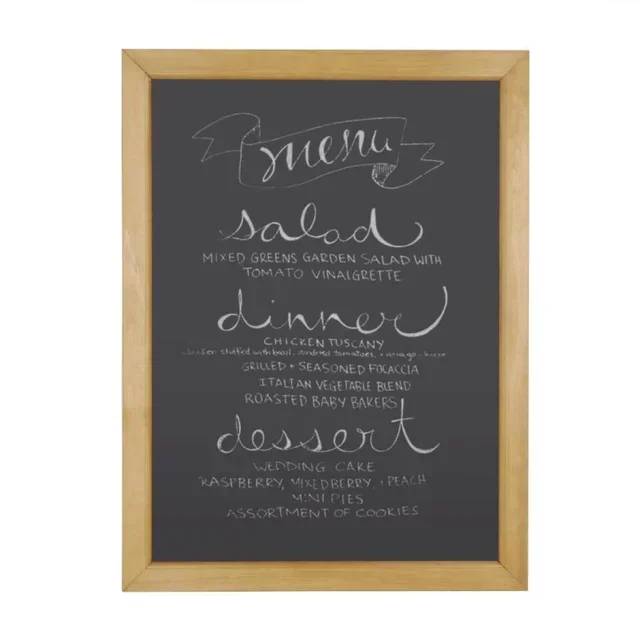 menu
salad
MIXED GREENS GARDEN SALAD WITH
TOMATO VINAIGRETTE
dinner
CHICKEN TUSCANY
chicken stuffed with basil, sundried tomatoes, +
GRILLED + SEASONED FOCACCIA
ITALIAN VEGETABLE BLEND
ROASTED BABY BAKERS
dessert
WEDDING CAKE
RASPBERRY, MIXEDBERRY, + PEACH
MINI PIES
ASSORTMENT OF COOKIES